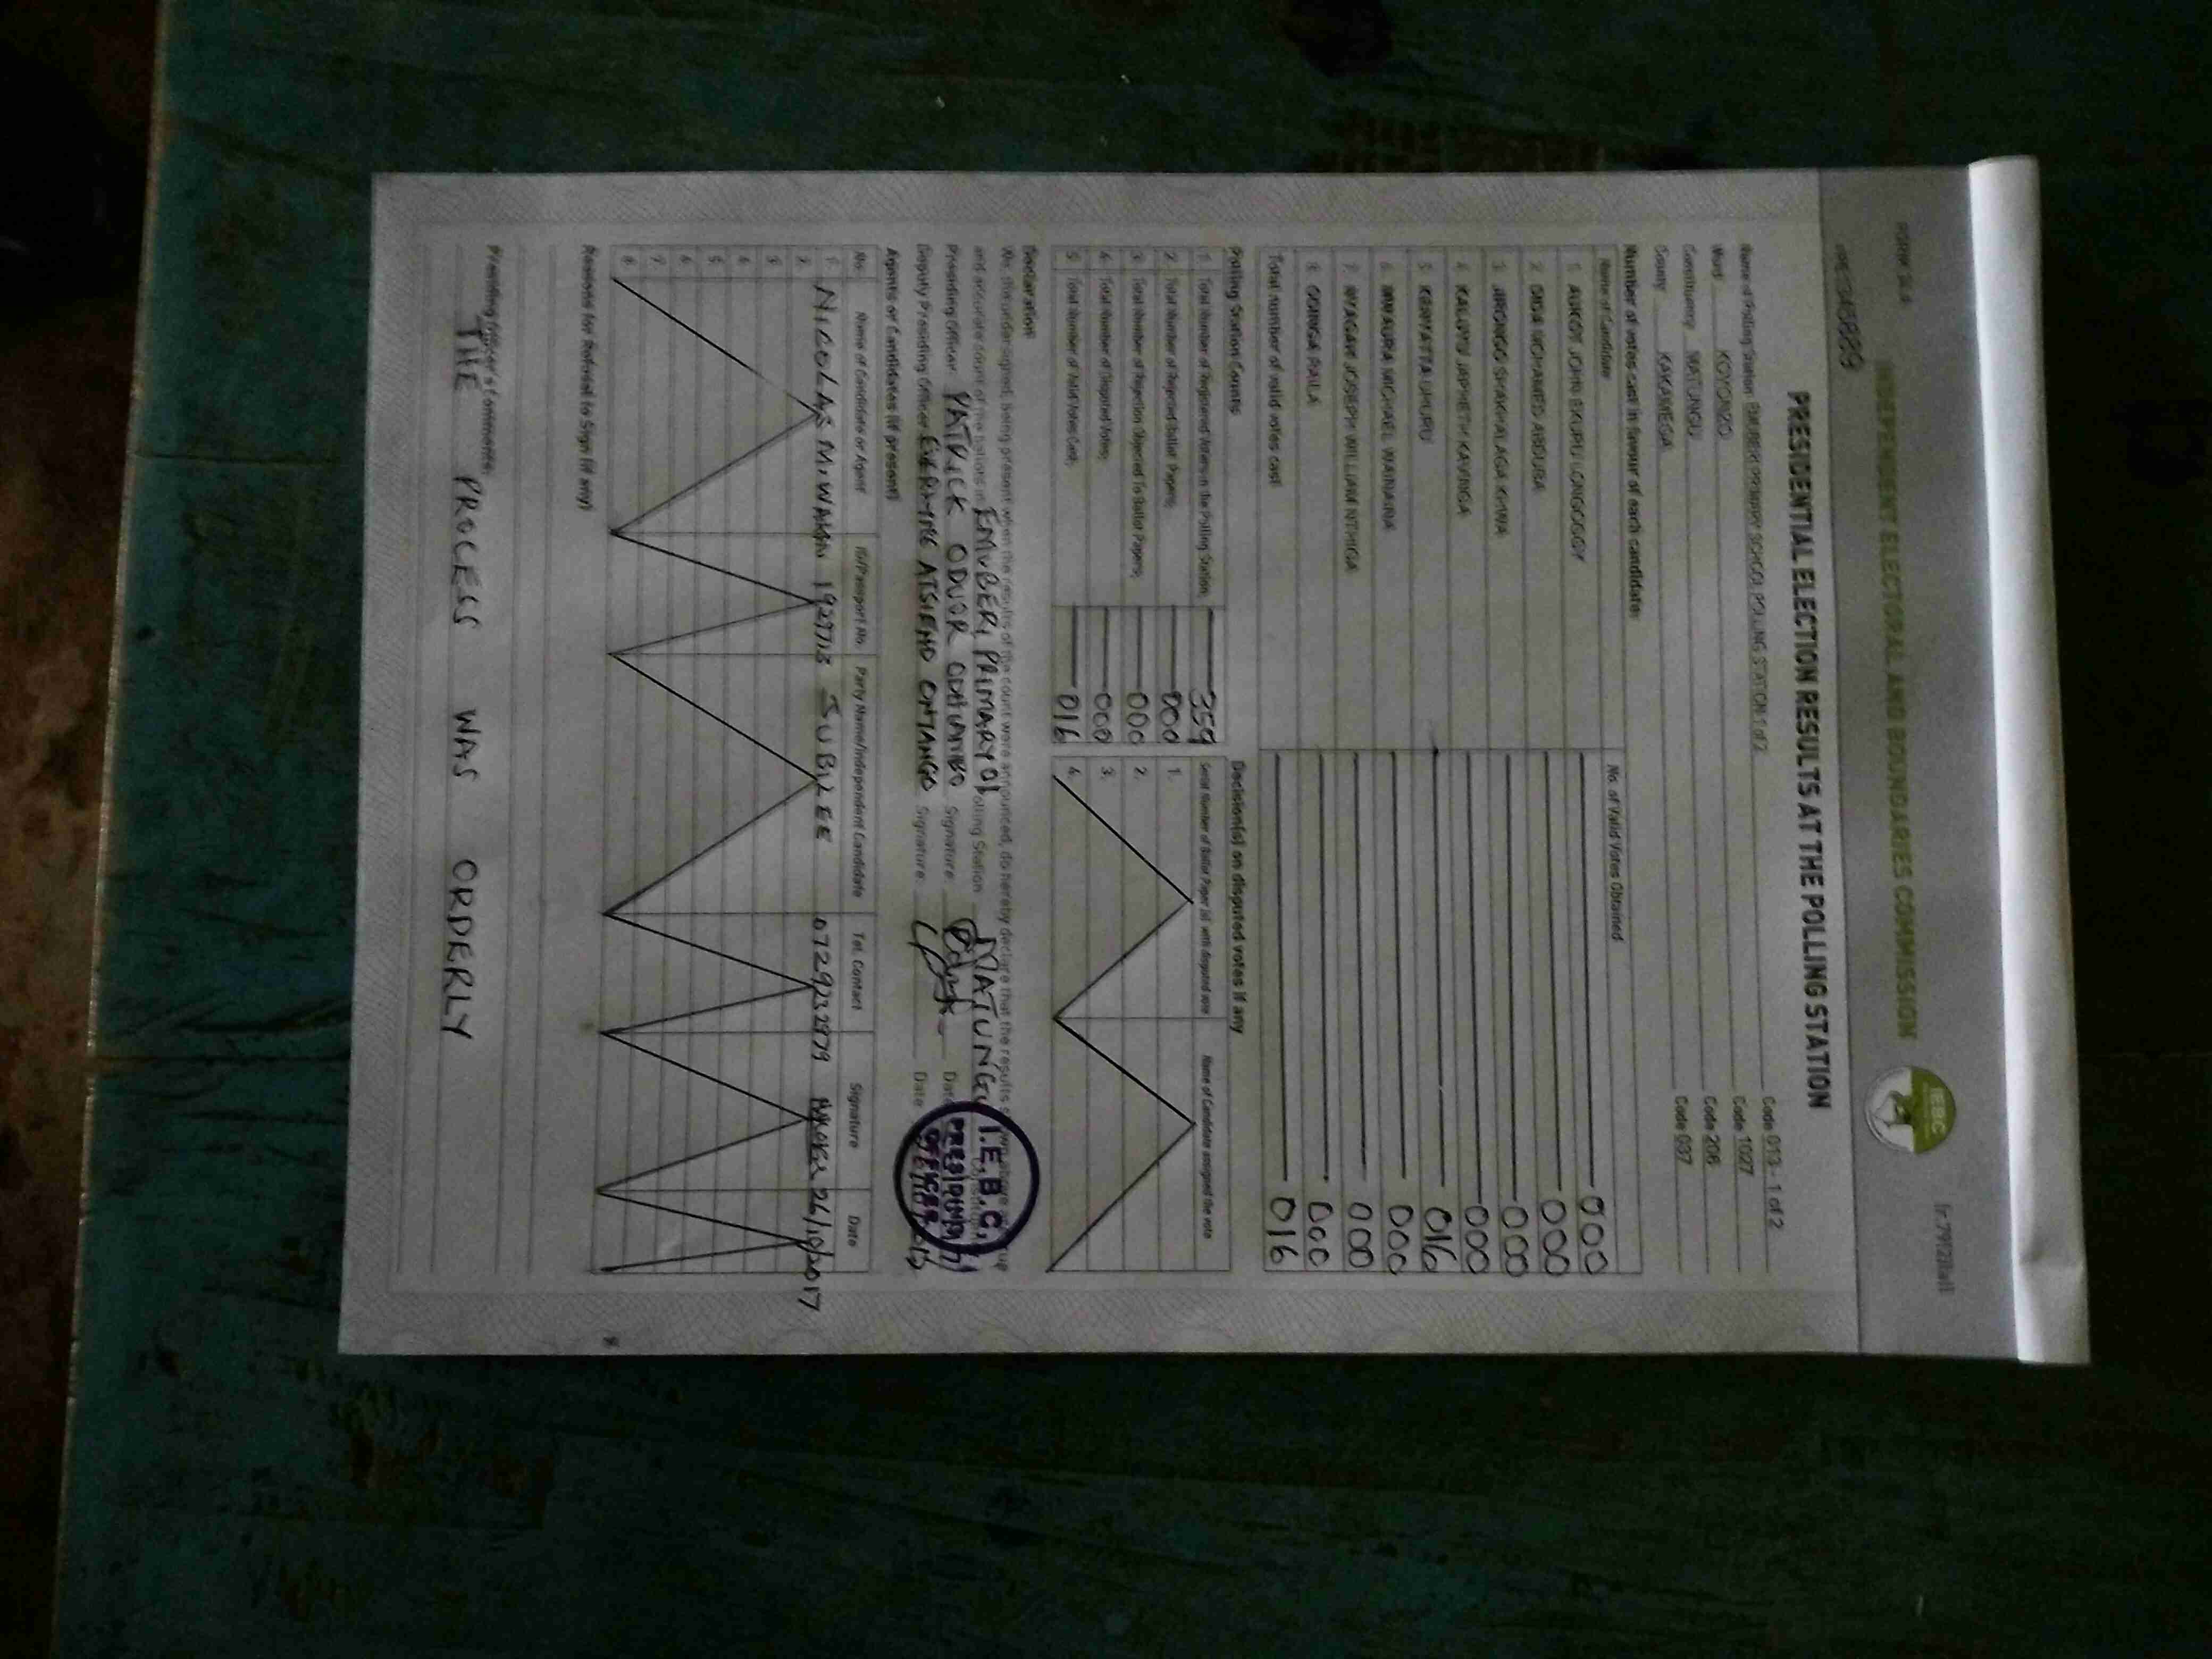 FORM 34A
INDEPENDENT ELECTORAL AND BOUNDARIES COMMISSION
IEBC
PRESIDENTIAL ELECTION RESULTS AT THE POLLING STATION
Name of Polling Station PRIMARY SCHOOL POLLING STATION 1 of 2 Code 013 - 1 of 2
Ward KOYONZO Code 1027
Constituency MATUNGU Code 206
County KAKAMEGA Code 037
Number of votes cast in favour of each candidate:
Name of Candidate No. of Valid Votes Obtained
1. AUKOT JOHN EKURU LONGOGGY 000
2. DIDA MOHAMED ABDUBA 000
3. JIRONGO SHAKHALAGA KHWA 000
4. KALUYU JAPHETH KAVINGA 000
5. KENYATTA UHURU 016
6. MWAURA MICHAEL WAINAINA 000
7. NYAGAH JOSEPH WILLIAM NTHIGA 000
8. ODINGA RAILA 000
Total number of valid votes cast 016
Polling Station Counts
1. Total Number of Registered Voters in the Polling Station 359
2. Total Number of Rejected Ballot Papers; 000
3. Total Number of Rejection Objected To Ballot Papers; 000
4. Total Number of Disputed Votes; 000
5. Total Number of Valid Votes Cast; 016
Decision(s) on disputed votes if any
Serial Number of Ballot Paper (s) with disputed vote Name of Candidate assigned the vote
1.
2.
3.
4.
Declaration
We, the undersigned, being present when the results of the count were announced, do hereby declare that the results
and accurate count of the ballots in EMUBERI PRIMARY 01 Polling Station MATUNGU
Presiding Officer PATRICK ODUOR Signature Date
Deputy Presiding Officer Signature Date
I.E.B.C.
PRESIDING
OFFICER
Agents or Candidates (if present)
No. Name of Candidate or Agent ID/Passport No. Party Name/Independent Candidate Tel. Contact Signature Date
1. NICOLAS JUBILEE 26/10/2017
2.
3.
4.
5.
6.
7.
8.
Reasons for Refusal to Sign (if any)
Presiding Officer's Comments:
THE PROCESS WAS ORDERLY